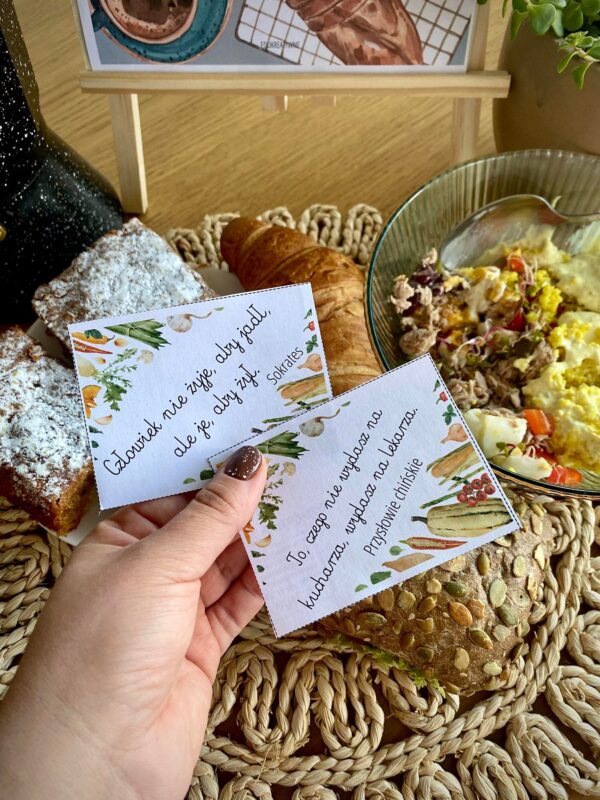 Człowiek nie żyje, aby jadł,
ale je, aby żył.
Sokrates
To, czego nie wydasz na
kucharza, wydasz na lekarza.
Przysłowie chińskie